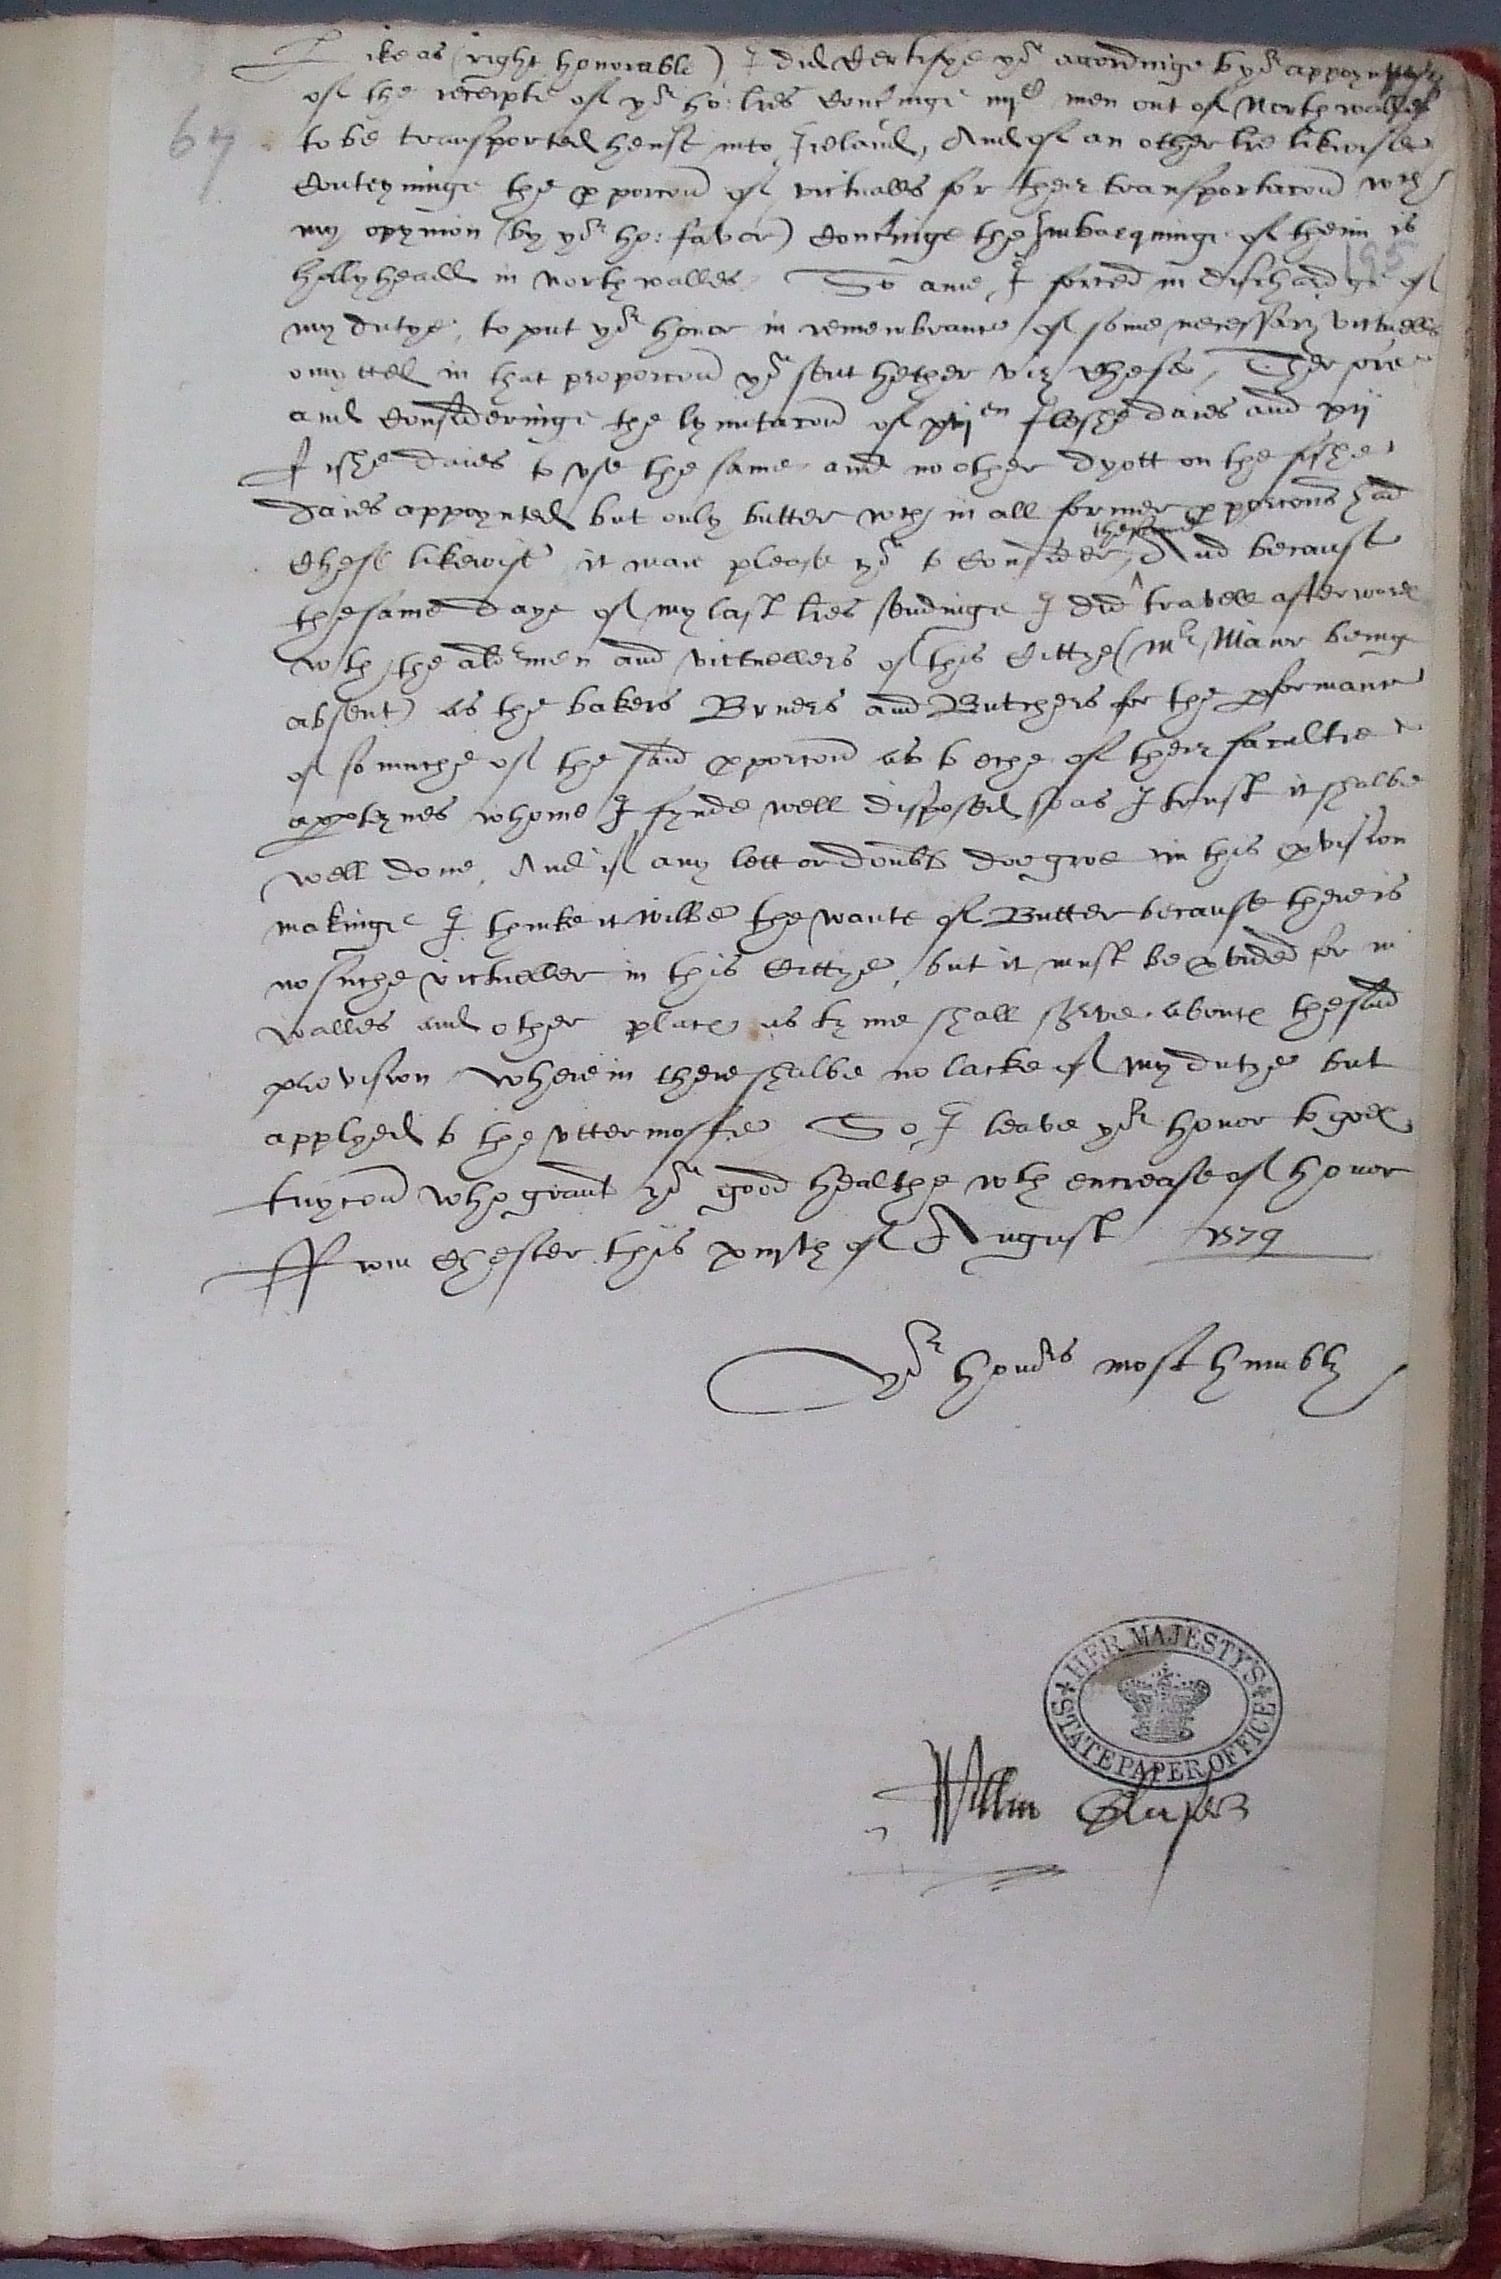 Like as (right honorable) I did Certifye yor accordinge to yor appoyntment
67
of the receipte of yor ho: lres Concñinge iiijC men out of Northwalles
to be transported henst into Ireland, And of an other lre likewise
Conteyninge the pporcon of victualls for their transportacon wth
my opynion (by yor ho: favor) Concñinge the Imbarquinge of theim is
195
hollyhead in northwalles. So ame I forced in dischardge of
my dutye, to put yor honor in remembrance of some necessary victuells
omytted in that proporcon yor sent hether viz Chese, Therfore
and Consideringe the lymitacon of xvjen fleshe daies and xij
Fishe daies to use the same and no other dyott on the fishe
daies appoynted but only butter wch in all former pporcons had
Chese likewise it maie please yor to Consider, And because
thesame
thesame daye of my last lres sendinge I did ^ travell afterward
wth the aldrmen and victuellers of this Cittye (Mr Maior being
absent) as the bakers Bruers and Butchers for the pformance
of so muche of the said pporcon as to eche of their facultie
appteynes whome I fynde well disposed so as I trust it shalbe
well done, And if any lett or doubt doo groe in this pvision
makinge I thinke it wilbe the wante of Butter because there is
no suche victueller in this Cittye, but it must be pvided for in
walles and other places as tyme shall serve aboute the said
provision wherein there shalbe no lacke of my dutye but
applyed to the uttermoste So I leave yor honor to god
tuycon who graunt yor good healthe wth encrease of honor
From Chester this xiiijth of August 1579
yor honors most humbly
HER MAJESTY'S STATE PAPER OFFICE
Willm Glasior